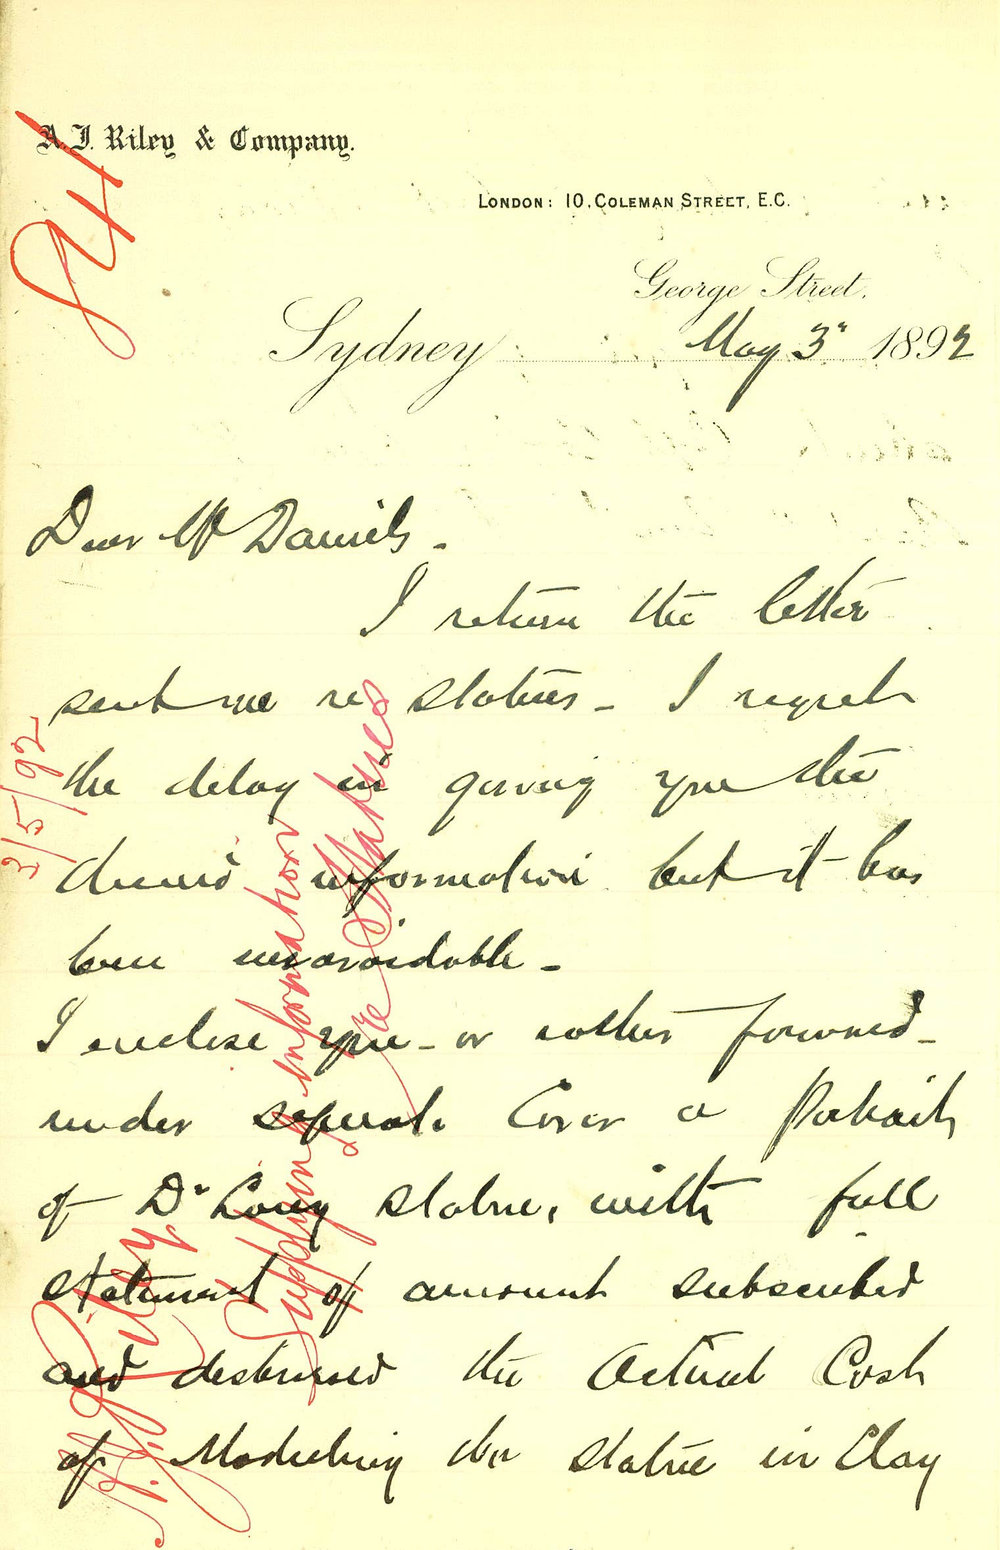 A.J. Riley & Company.
LONDON: 10, COLEMAN STREET, E.C.
George Street.
Sydney May 3" 1892
Dear Mr Daniels.
I return the letter
sent me re statues - I regret
the delay in giving you the
desired information but it has
been unavoidable -
I enclose you - or rather forward -
under separate Cover a Portrait
of Dr Lang statue, with full
statement of amount subscribed
and disbursed the Actual Cost
of Modeling the statue in Clay
841
3/5/92
A. J. Riley
Supplying information
re Statues